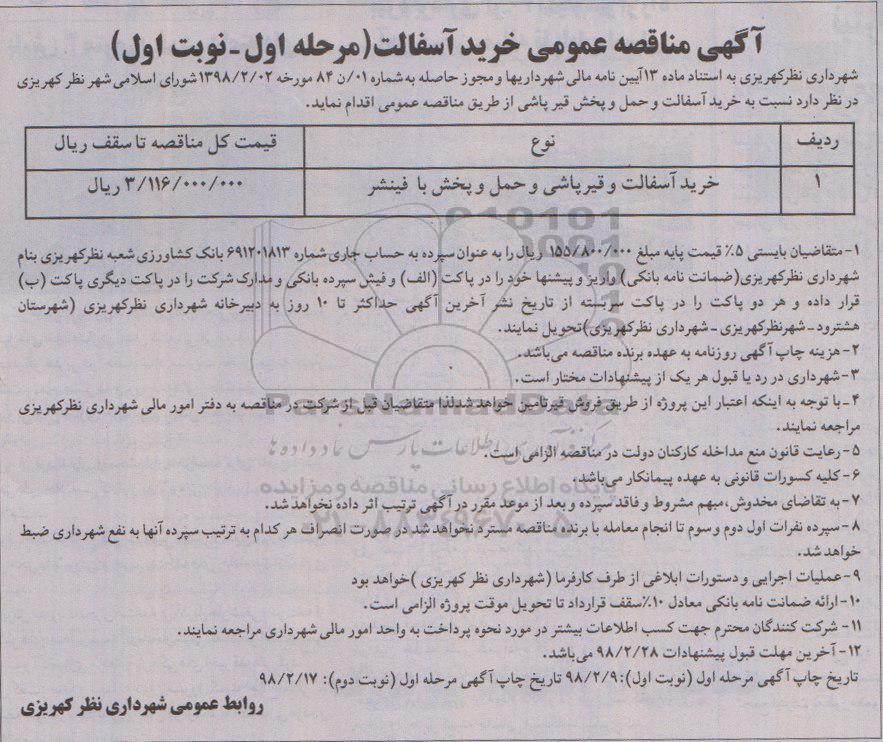 آگهی مناقصه عمومی خرید آسفالت(مرحله اول-نوبت اول)
شهرداری نظرکهریزی به استناد ماده ۱۳آیین نامه مالی شهرداریها و مجوز حاصله به شماره ۰۱/ن ۸۴ مورخه ۱۳۹۸/۲/۰۲ شورای اسلامی شهر نظر کهریزی
در نظر دارد نسبت به خرید آسفالت و حمل و پخش قیر پاشی از طریق مناقصه عمومی اقدام نماید.
ردیف نوع قیمت کل مناقصه تا سقف ریال
۱ خرید آسفالت و قیرپاشی و حمل و پخش با فینشر ۳/۱۱۶/۰۰۰/۰۰۰ ریال
۱-متقاضیان بایستی ۵٪ قیمت پایه مبلغ ۱۵۵/۸۰۰/۰۰۰ ریال را به عنوان سپرده به حساب جاری شماره ۶۹۱۲۰۱۸۱۳ بانک کشاورزی شعبه نظرکهریزی بنام
شهرداری نظرکهریزی(ضمانت نامه بانکی) واریز و پیشنها خود را در پاکت (الف) و فیش سپرده بانکی و مدارک شرکت را در پاکت دیگری پاکت (ب)
قرار داده و هر دو پاکت را در پاکت سربسته از تاریخ نشر آخرین آگهی حداکثر تا ۱۰ روز به دبیرخانه شهرداری نظرکهریزی (شهرستان
هشترود-شهرنظرکهریزی-شهرداری نظرکهریزی)تحویل نمایند.
۲-هزینه چاپ آگهی روزنامه به عهده برنده مناقصه می‌باشد.
۳-شهرداری در رد یا قبول هر یک از پیشنهادات مختار است.
۴-با توجه به اینکه اعتبار این پروژه از طریق فروش قیر تامین خواهد شد لذا متقاضیان قبل از شرکت در مناقصه به دفتر امور مالی شهرداری نظرکهریزی
مراجعه نمایند.
۵-رعایت قانون منع مداخله کارکنان دولت در مناقصه الزامی است.
۶-کلیه کسورات قانونی به عهده پیمانکار می‌باشد.
۷-به تقاضای مخدوش،مبهم مشروط و فاقد سپرده و بعد از موعد مقرر در آگهی ترتیب اثر داده نخواهد شد.
۸-سپرده نفرات اول دوم وسوم تا انجام معامله با برنده مناقصه مسترد نخواهد شد در صورت انصراف هر کدام به ترتیب سپرده آنها به نفع شهرداری ضبط
خواهد شد.
۹-عملیات اجرایی و دستورات ابلاغی از طرف کارفرما (شهرداری نظر کهریزی )خواهد بود
۱۰-ارائه ضمانت نامه بانکی معادل ۱۰٪سقف قرارداد تا تحویل موقت پروژه الزامی است.
۱۱- شرکت کنندگان محترم جهت کسب اطلاعات بیشتر در مورد نحوه پرداخت به واحد امور مالی شهرداری مراجعه نمایند.
۱۲-آخرین مهلت قبول پیشنهادات ۹۸/۲/۲۸ می‌باشد.
تاریخ چاپ آگهی مرحله اول (نوبت اول):۹۸/۲/۹ تاریخ چاپ آگهی مرحله اول (نوبت دوم): ۹۸/۲/۱۷
روابط عمومی شهرداری نظر کهریزی
ParsNamadData
پایگاه اطلاع رسانی مناقصه و مزایده